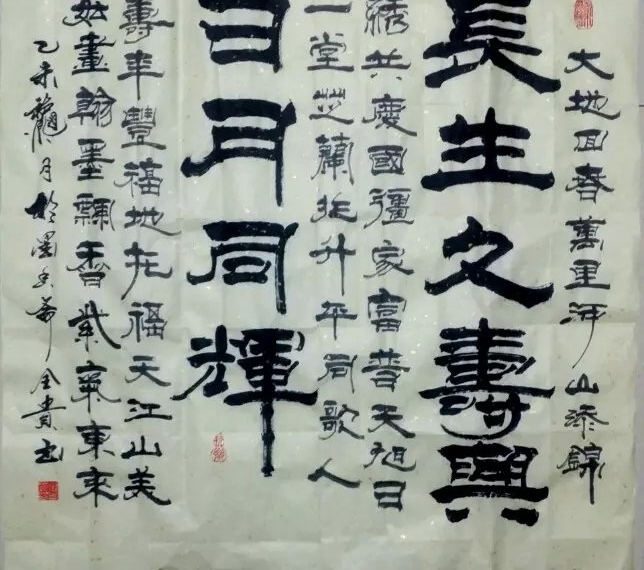 大地回春萬里河山添錦
長生久壽與
繡共慶國疆家富普天旭日
一堂芝蘭升平同歌人
日月同輝
壽年豐福地福天江山美
如畫翰墨飄香紫氣東來
乙未龝月於墨香齋全貴书